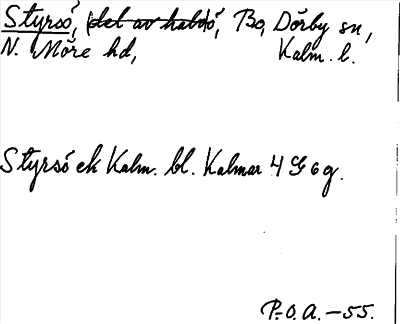 Styrsö, (del av halvö), Bo, Dörby sn,
N. Möre hd, Kalm. l.
Styrsö ek Kalm. bl. Kalmar 4 G 6 g.
P.O.A. -55.